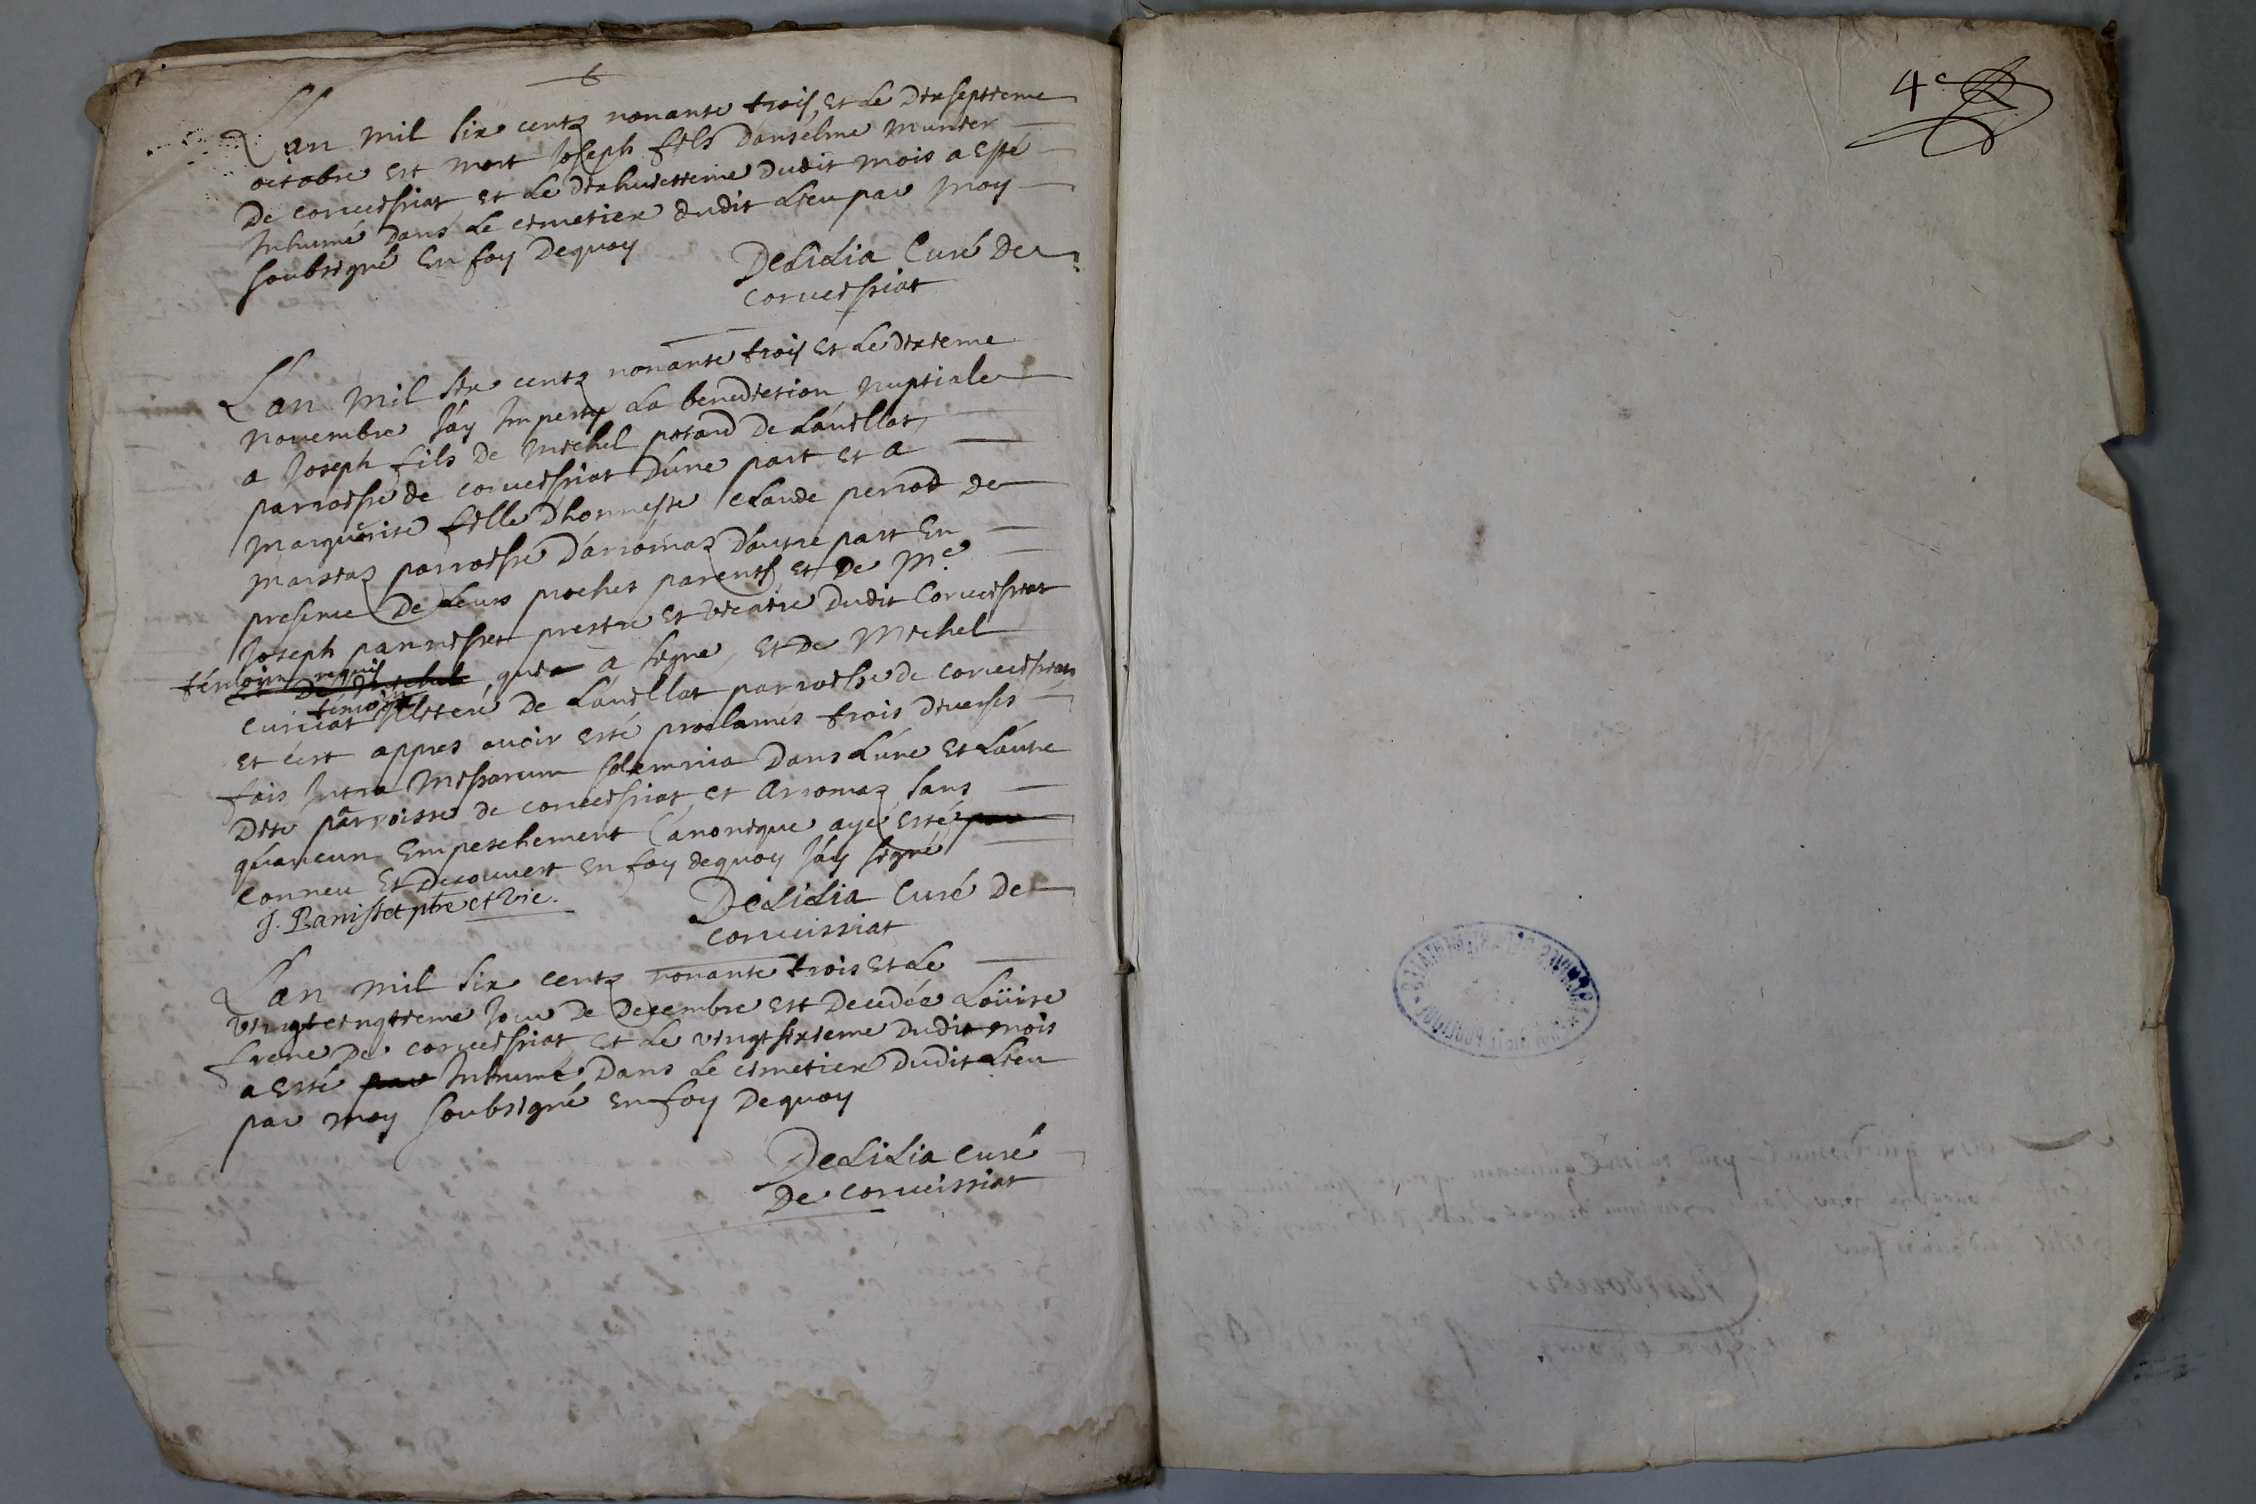 L'an mil six centz nonante trois et le dixseptieme
octobre est mort Joseph fils d'anselme munier
de corveissiat et le dixhuictieme dudit mois a esté
Inhumé dans le cimetier dudit lieu par moy
soubsigné en foy dequoy
Delilia Curé de
corveissiat
L'an mil six centz nonante trois et le dixieme
novembre J'ay Imperty la benediction nuptiale
a Joseph fils de michel pitard de Lavillat
parroisse de corveissiat d'une part et a
marguerite fille d'honneste claude perrod de
marsiaz parroisse d'arromaz d'autre part En
presence de leurs proches parents et de Me
Joseph pannisset prestre et vicaire dudit Corveissiat
témoins requis qui a signe, et de michel
témoin
curicat illiteré de Lavillat parroisse de corveissiat
et c'est appres avoir esté proclamés trois diverses
fois Intra missarum solemnia dans l'une et l'autre
dite parroisse de corveissiat et arromaz sans
qu'aucun Empeschement Canonique aye esté
conneu et decouvert en foy dequoy J'ay signé
J. Panisset pbre et vic.
Delilia Curé de
corveissiat
L'an mil six centz nonante trois et le
vingtcinqtieme jour de decembre est decedée Loüise
de corveissiat et le vingtsixieme dudit mois
a esté Inhumé dans le cimetier dudit lieu
par moy soubsigné en foy dequoy
Delilia curé
de corveissiat
4e